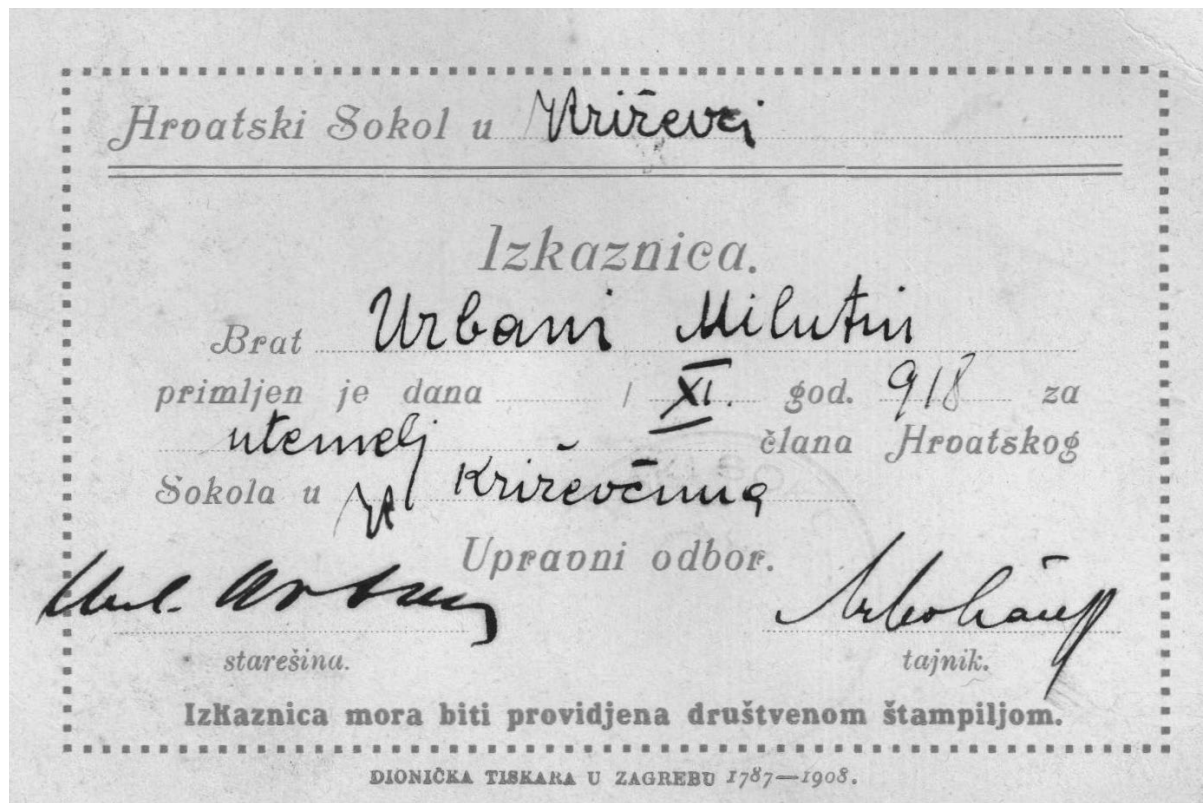 Hrvatski Sokol u Križevci
Izkaznica.
Brat Urbani Milutin
primljen je dana / XI. god. 918 za
utemelj člana Hrvatskog
Sokola u Križevčima
Upravni odbor.
starešina. tajnik.
Izkaznica mora biti providjena društvenom štampiljom.
DIONIČKA TISKARA U ZAGREBU 1787—1908.